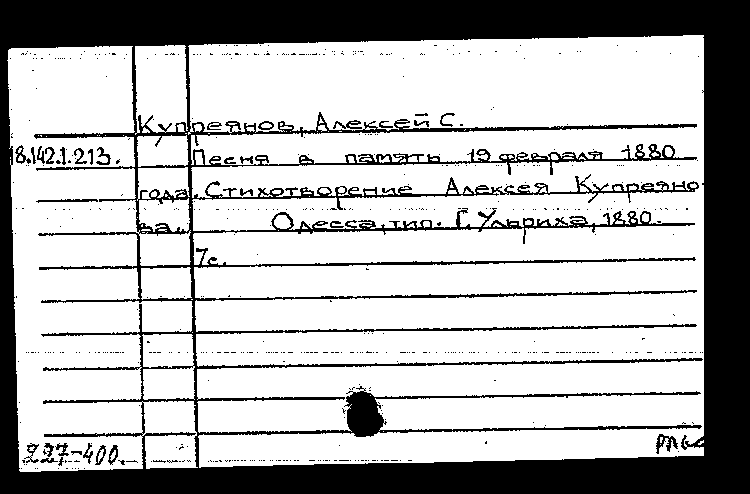 Купреянов, Алексей С.
18.142.1.213. Песня в память 19 февраля 1880
года. Стихотворение Алексея Купреяно-
ва. Одесса, тип. Г. Ульриха, 1880.
7с.
227-400.